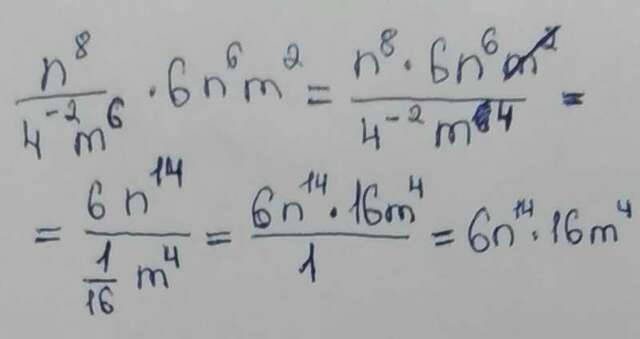 n⁸/(4⁻²m⁶) · 6n⁶m² = (n⁸ · 6n⁶m̶²̶)/(4⁻²m⁴) =
= 6n¹⁴/((1/16)m⁴) = (6n¹⁴ · 16m⁴)/1 = 6n¹⁴ · 16m⁴